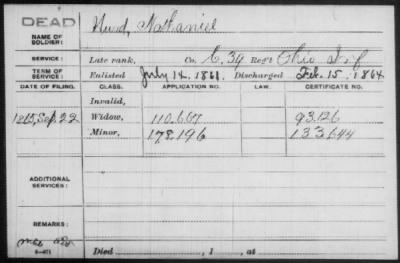 DEAD
NAME OF SOLDIER: Nathaniel
SERVICE: Late rank, Co. C. 39 Reg't Ohio Inf
TERM OF SERVICE: Enlisted July 14. 1861. Discharged Feb. 15. 1864.
DATE OF FILING. CLASS. APPLICATION NO. LAW. CERTIFICATE NO.
Invalid,
1865, Sep 22 Widow, 110.607 93.126
Minor, 178.196 133.644
ADDITIONAL SERVICES:
REMARKS:
Died , 1 , at